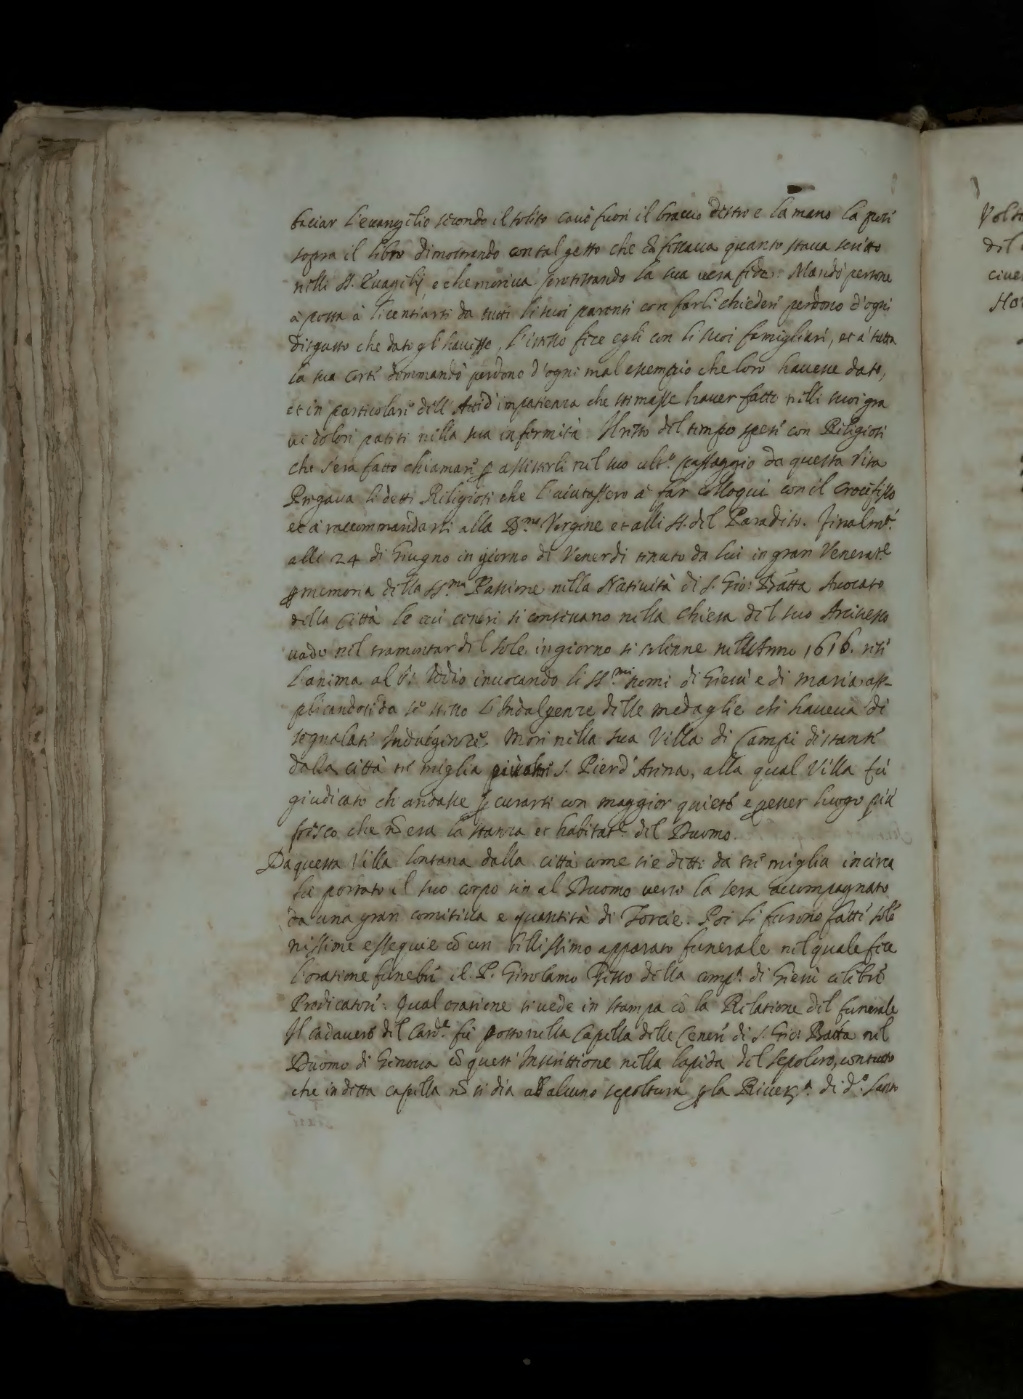 baciar l'euangelio secondo il solito cauò fuori il braccio destro e la mano la posè
sopra il libro dimostrando con tal gesto che confessaua quanto staua scritto
nelli SS. Euangelij e che moriua protestando la sua uera fede. Mandò persone
a posta à licentiarsi da tutti li suoi parenti con farli chiedere perdono d'ogni
disgusto che dato gl'hauesse, l'istesso fece egli con li suoi famigliari, et à tutta
la sua corte dommandò perdono d'ogni mal essempio che loro hauesse dato,
et in particolare dell'Atti d'impatienza che stimasse hauer fatto nelli suoi gra
ui dolori patiti nella sua infermità. Il resto del tempo spese con Religiosi
che s'era fatto chiamare p assisterli nel suo ult.º passaggio da questa Vita
Pregaua li detti Religiosi che l'aiutassero à far colloqui con il Crocifisso
et à raccommandarsi alla B.ma Vergine et alli SS. del Paradiso. Finalmte.
alli 24 di Giugno in giorno di Venerdi tenuto da lui in gran Venerat.e
p memoria della SS.ma Passione nella Natiuità di S. Gio: Batta Auocato
della Città le cui ceneri si conseruano nella Chiesa del suo Arciuesco
uado nel tramontar del sole in giorno si solenne nell'Anno 1616. rese
l'anima al S. Iddio inuocando li SS.mi nomi di Giesù e di maria: ap-
plicandosi da se stesso l'Indulgenze delle medaglie ch haueua di
segnalate Indulgenze. Morì nella sua Villa di Campi distante
dalla città tre miglia S. Pier d'Arena, alla qual Villa fù
giudicato ch andasse p curarsi con maggior quiete e p esser luogo più
fresco che nõ era la stanza et habitat.e del Duomo.
Da questa Villa lontana dalla città come si è detto da tre miglia incirca
fu portato il suo corpo sin al Duomo uerso la sera accompagnato
da una gran comitiua e quantità di Torcie. Poi li furono fatte sole
nissime essequie cõ un bellissimo apparato funerale nel quale fece
l'oratione funebre il P. Girolamo della comp.a di Giesù celibre
Predicatore. Qual oratione si uede in stampa cõ la Relatione del funerale
Il cadauero del Card.e fù posto nella Capella delle Ceneri di S. Gio: Batta nel
Duomo di Genoua cõ questa Inscrittione nella lapida del sepolcro, con tutto
che in detta capella nõ si dia ad alcuno sepoltura p la Riuer.a di d.º Santo
Volto